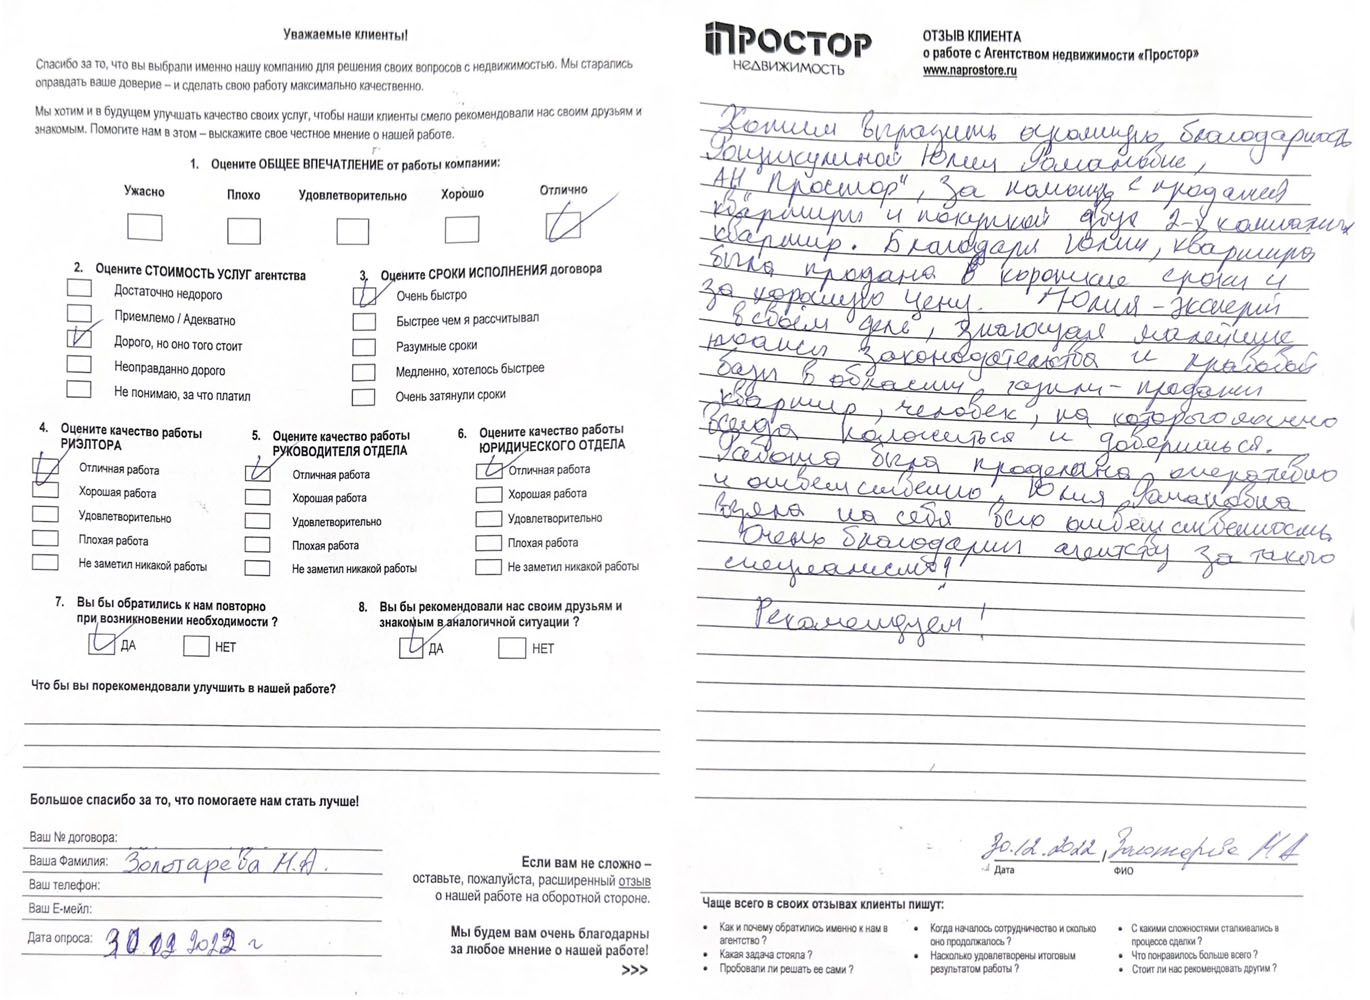 Уважаемые клиенты!
Спасибо за то, что вы выбрали именно нашу компанию для решения своих вопросов с недвижимостью. Мы старались
оправдать ваше доверие – и сделать свою работу максимально качественно.
Мы хотим и в будущем улучшать качество своих услуг, чтобы наши клиенты смело рекомендовали нас своим друзьям и
знакомым. Помогите нам в этом – выскажите свое честное мнение о нашей работе.
1. Оцените ОБЩЕЕ ВПЕЧАТЛЕНИЕ от работы компании:
Ужасно Плохо Удовлетворительно Хорошо Отлично
2. Оцените СТОИМОСТЬ УСЛУГ агентства
Достаточно недорого
Приемлемо / Адекватно
Дорого, но оно того стоит
Неоправданно дорого
Не понимаю, за что платил
3. Оцените СРОКИ ИСПОЛНЕНИЯ договора
Очень быстро
Быстрее чем я рассчитывал
Разумные сроки
Медленно, хотелось быстрее
Очень затянули сроки
4. Оцените качество работы
РИЭЛТОРА
Отличная работа
Хорошая работа
Удовлетворительно
Плохая работа
Не заметил никакой работы
5. Оцените качество работы
РУКОВОДИТЕЛЯ ОТДЕЛА
Отличная работа
Хорошая работа
Удовлетворительно
Плохая работа
Не заметил никакой работы
6. Оцените качество работы
ЮРИДИЧЕСКОГО ОТДЕЛА
Отличная работа
Хорошая работа
Удовлетворительно
Плохая работа
Не заметил никакой работы
7. Вы бы обратились к нам повторно
при возникновении необходимости ?
ДА НЕТ
8. Вы бы рекомендовали нас своим друзьям и
знакомым в аналогичной ситуации ?
ДА НЕТ
Что бы вы порекомендовали улучшить в нашей работе?
Большое спасибо за то, что помогаете нам стать лучше!
Ваш № договора:
Ваша Фамилия: Золотарева Н.А.
Ваш телефон:
Ваш Е-мейл:
Дата опроса: 30 12 2022 г
Если вам не сложно –
оставьте, пожалуйста, расширенный отзыв
о нашей работе на оборотной стороне.
Мы будем вам очень благодарны
за любое мнение о нашей работе!
>>>
ПРОСТОР
НЕДВИЖИМОСТЬ
ОТЗЫВ КЛИЕНТА
о работе с Агентством недвижимости «Простор»
www.naprostore.ru
Хотим выразить огромную благодарность
Юлии Романовне,
АН "Простор", за помощь с продажей
квартиры и покупкой двух 2-х комнатных
квартир. Благодаря Юлии, квартира
была продана в короткие сроки и
за хорошую цену. Юлия - эксперт
в своём деле, знающая малейшие
нюансы законодательства и правовой
базы в области купли-продажи
квартир, человек, на которого можно
всегда положиться и довериться.
Работа была проделана оперативно
и ответственно, Юлия Романовна
взяла на себя всю ответственность.
Очень благодарны агентству за такого
специалиста!
Рекомендуем!
30.12.2022, Золотарева Н А
Дата ФИО
Чаще всего в своих отзывах клиенты пишут:
• Как и почему обратились именно к нам в
агентство ?
• Какая задача стояла ?
• Пробовали ли решать ее сами ?
• Когда началось сотрудничество и сколько
оно продолжалось ?
• Насколько удовлетворены итоговым
результатом работы ?
• С какими сложностями сталкивались в
процессе сделки ?
• Что понравилось больше всего ?
• Стоит ли нас рекомендовать другим ?